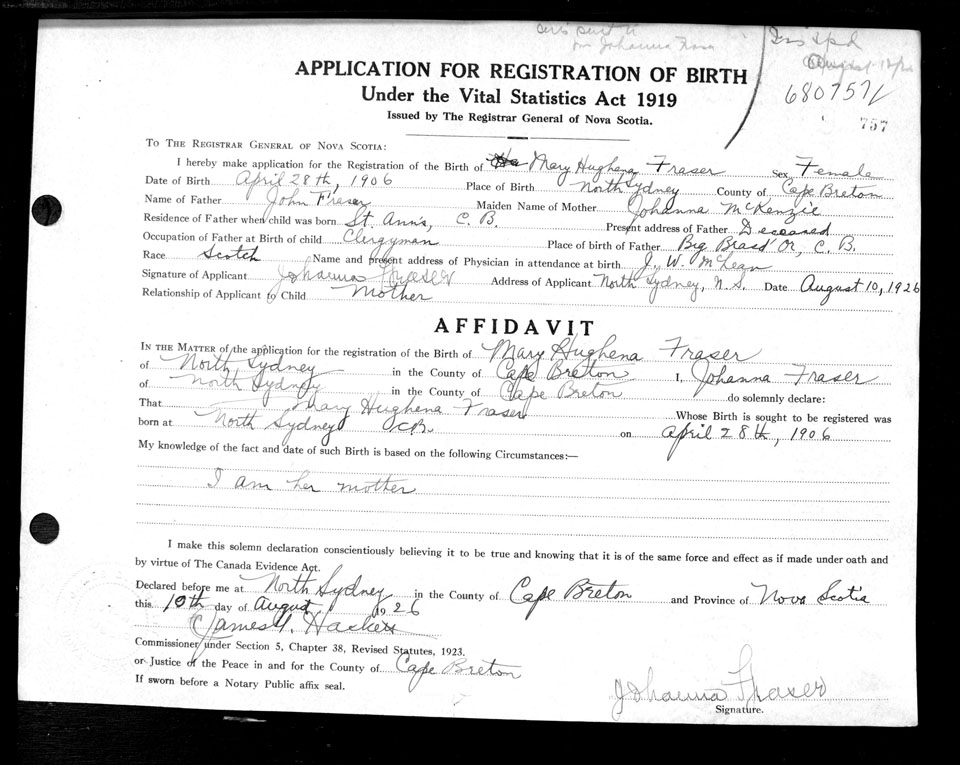 Johanna Fraser
6807571
757
APPLICATION FOR REGISTRATION OF BIRTH
Under the Vital Statistics Act 1919
Issued by The Registrar General of Nova Scotia.
TO THE REGISTRAR GENERAL OF NOVA SCOTIA:
I hereby make application for the Registration of the Birth of Mary Hughena Fraser Sex Female
Date of Birth April 28th, 1906 Place of Birth North Sydney County of Cape Breton
Name of Father John Fraser Maiden Name of Mother Johanna McKenzie
Residence of Father when child was born St. Ann's, C. B. Present address of Father Deceased
Occupation of Father at Birth of child Clergyman Place of birth of Father Big Bras d'Or, C. B.
Race Scotch Name and present address of Physician in attendance at birth J. W. McLean
Signature of Applicant Johanna Fraser Address of Applicant North Sydney, N. S. Date August 10, 1926
Relationship of Applicant to Child Mother
AFFIDAVIT
IN THE MATTER of the application for the registration of the Birth of Mary Hughena Fraser
of North Sydney in the County of Cape Breton I, Johanna Fraser
of North Sydney in the County of Cape Breton do solemnly declare:
That Mary Hughena Fraser Whose Birth is sought to be registered was
born at North Sydney CB on April 28th, 1906
My knowledge of the fact and date of such Birth is based on the following Circumstances:—
I am her mother
I make this solemn declaration conscientiously believing it to be true and knowing that it is of the same force and effect as if made under oath and
by virtue of The Canada Evidence Act.
Declared before me at North Sydney in the County of Cape Breton and Province of Nova Scotia
this 10th day of August 1926
James Hackett
Commissioner under Section 5, Chapter 38, Revised Statutes, 1923.
or Justice of the Peace in and for the County of Cape Breton
If sworn before a Notary Public affix seal.
Johanna Fraser
Signature.